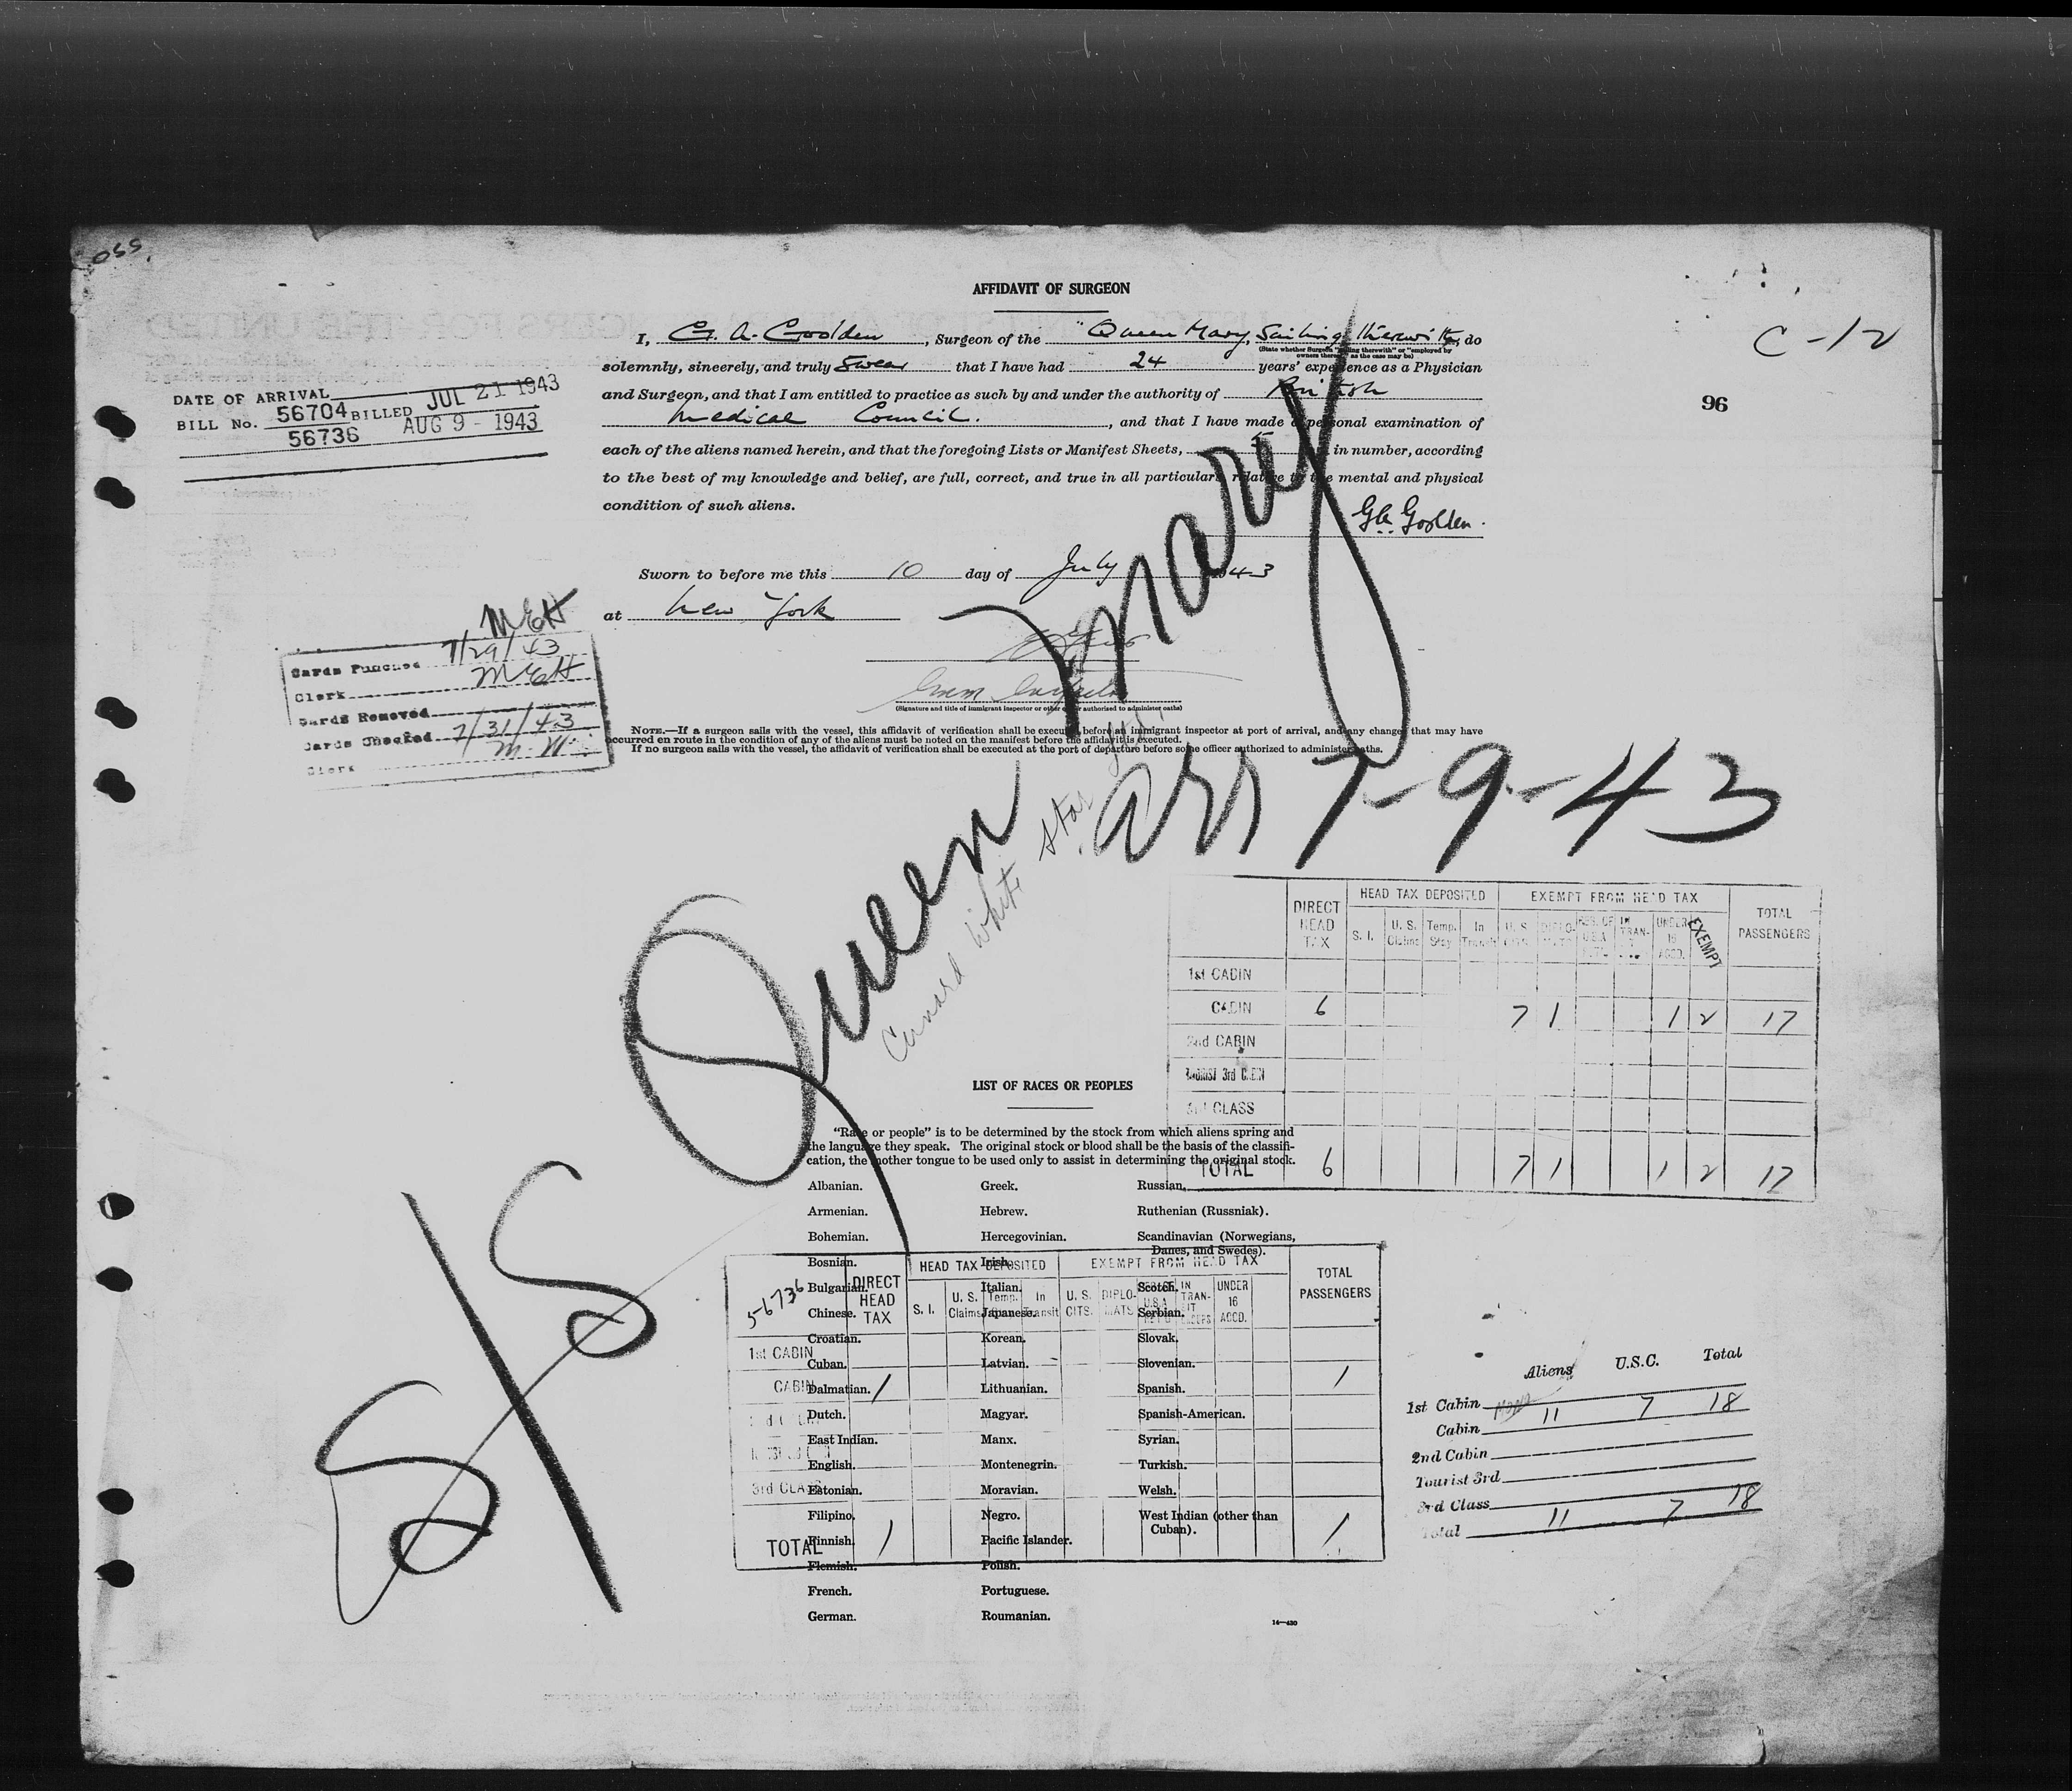 OSS.
AFFIDAVIT OF SURGEON
I, G. A. Goolden, Surgeon of the "Queen Mary, Sailing therewith, do
(State whether Surgeon "sailing therewith" or "employed by
owners thereof" as the case may be)
solemnly, sincerely, and truly Swear that I have had 24 years' experience as a Physician
and Surgeon, and that I am entitled to practice as such by and under the authority of British
Medical Council., and that I have made a personal examination of
each of the aliens named herein, and that the foregoing Lists or Manifest Sheets, 5 in number, according
to the best of my knowledge and belief, are full, correct, and true in all particulars relative to the mental and physical
condition of such aliens.
GA Goolden.
Sworn to before me this 10 day of July 1943
at New York
(Signature and title of immigrant inspector or other officer authorized to administer oaths)
NOTE.—If a surgeon sails with the vessel, this affidavit of verification shall be executed before an immigrant inspector at port of arrival, and any changes that may have
occurred en route in the condition of any of the aliens must be noted on the manifest before the affidavit is executed.
If no surgeon sails with the vessel, the affidavit of verification shall be executed at the port of departure before some officer authorized to administer oaths.
C-12
96
DATE OF ARRIVAL
BILL No. 56704 BILLED JUL 21 1943
56736 AUG 9 - 1943
MEH
Cards Punched 7/29/43
Clerk MEH
Cards Removed
Cards Checked 7/31/43
Clerk M.W.
S/S Queen Mary
arr 7-9-43
Cunard White Star Ltd.
DIRECT HEAD TAX
HEAD TAX DEPOSITED
EXEMPT FROM HEAD TAX
TOTAL PASSENGERS
S. I. U. S. Claims Temp. Stay In Transit U. S. CITS. DIPLO-MATS IN TRAN- UNDER 16 ACCD. EXEMPT
1st CABIN
CABIN 6 7 1 1 2 17
2nd CABIN
TOURIST 3rd CABIN
3rd CLASS
TOTAL 6 7 1 1 2 17
LIST OF RACES OR PEOPLES
"Race or people" is to be determined by the stock from which aliens spring and
the language they speak. The original stock or blood shall be the basis of the classifi-
cation, the mother tongue to be used only to assist in determining the original stock.
Albanian.
Armenian.
Bohemian.
Bosnian.
Bulgarian.
Chinese.
Croatian.
Cuban.
Dalmatian.
Dutch.
East Indian.
English.
Estonian.
Filipino.
Finnish.
Flemish.
French.
German.
Greek.
Hebrew.
Hercegovinian.
Irish.
Italian.
Japanese.
Korean.
Latvian.
Lithuanian.
Magyar.
Manx.
Montenegrin.
Moravian.
Negro.
Pacific Islander.
Polish.
Portuguese.
Roumanian.
Russian.
Ruthenian (Russniak).
Scandinavian (Norwegians,
Danes, and Swedes).
Scotch.
Serbian.
Slovak.
Slovenian.
Spanish.
Spanish-American.
Syrian.
Turkish.
Welsh.
West Indian (other than
Cuban).
14—430
56736
DIRECT HEAD TAX
HEAD TAX DEPOSITED
EXEMPT FROM HEAD TAX
TOTAL PASSENGERS
S. I. U. S. Claims Temp. In Transit U. S. CITS. DIPLO-MATS U.S.A IN TRAN-SIT UNDER 16 ACCD.
1st CABIN
CABIN 1 1
3rd CLASS
TOTAL 1 1
Aliens U.S.C. Total
1st Cabin
Cabin 11 7 18
2nd Cabin
Tourist 3rd
3rd Class
Total 11 7 18